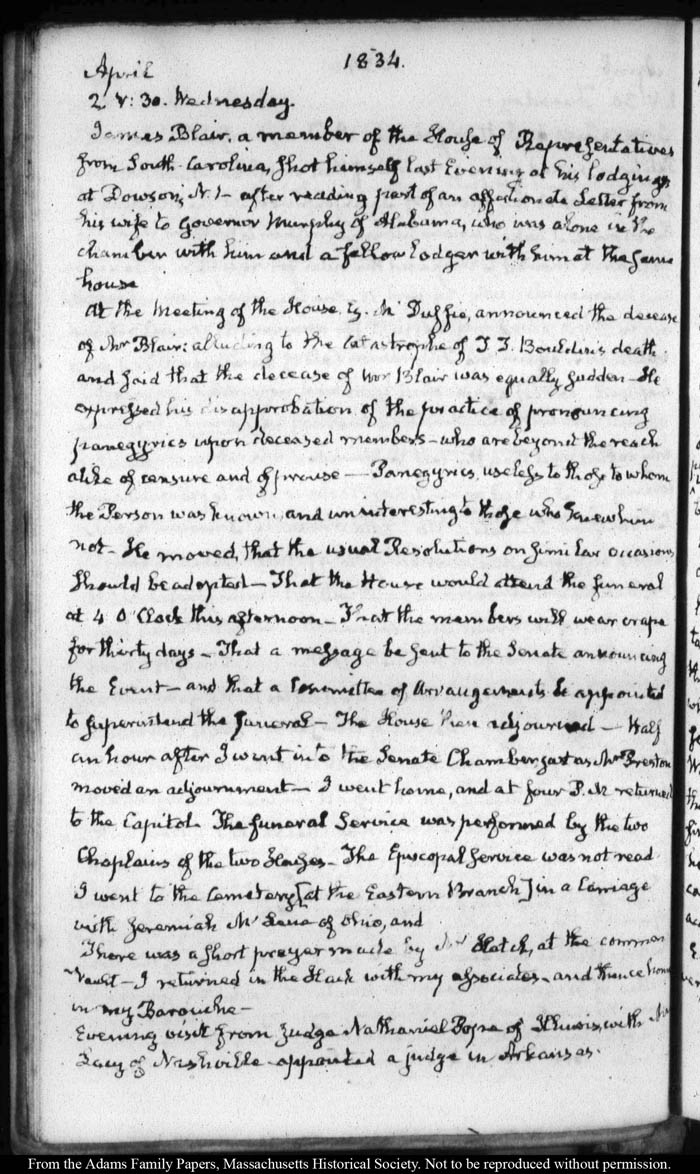 1834.
April
2. V: 30. Wednesday.
James Blair, a member of the House of Representatives
from South-Carolina, shot himself last Evening at his lodgings
at Dowson's N. 1 — after reading part of an affectionate Letter from
his wife to Governor Murphy of Alabama, who was alone in the
chamber with him and a fellow lodger with him at the same
house
At the Meeting of the House, Mc Duffie, announced the decease
of Mr Blair: alluding to the catastrophe of T. T. Bouldin's death
and said that the decease of Mr Blair was equally sudden — He
expressed his disapprobation of the practice of pronouncing
panegyrics upon deceased members — who are beyond the reach
alike of censure and of praise — Panegyrics, useless to those to whom
the Person was known, and uninteresting to those who knew him
not — He moved, that the usual Resolutions on similar occasions
should be adopted — That the House would attend the funeral
at 4 O'Clock this afternoon — That the members will wear crape
for thirty days — That a message be sent to the Senate announcing
the Event — and that a Committee of Arrangements be appointed
to superintend the funeral — The House then adjourned — Half
an hour after I went into the Senate Chamber just as Mr Preston
moved an adjournment — I went home, and at four P.M. returned
to the Capitol. The funeral Service was performed by the two
Chaplains of the two Houses — The Episcopal service was not read
I went to the Cemetery [at the Eastern Branch] in a Carriage
with Jeremiah Mc Lene of Ohio, and
There was a short prayer made by Mr Hatch, at the common
Vault — I returned in the Hack with my associates — and thence home
in my Barouche —
Evening visit from Judge Nathaniel Pope of Illinois, with Mr
of Nashville appointed a judge in Arkansas.
From the Adams Family Papers, Massachusetts Historical Society. Not to be reproduced without permission.